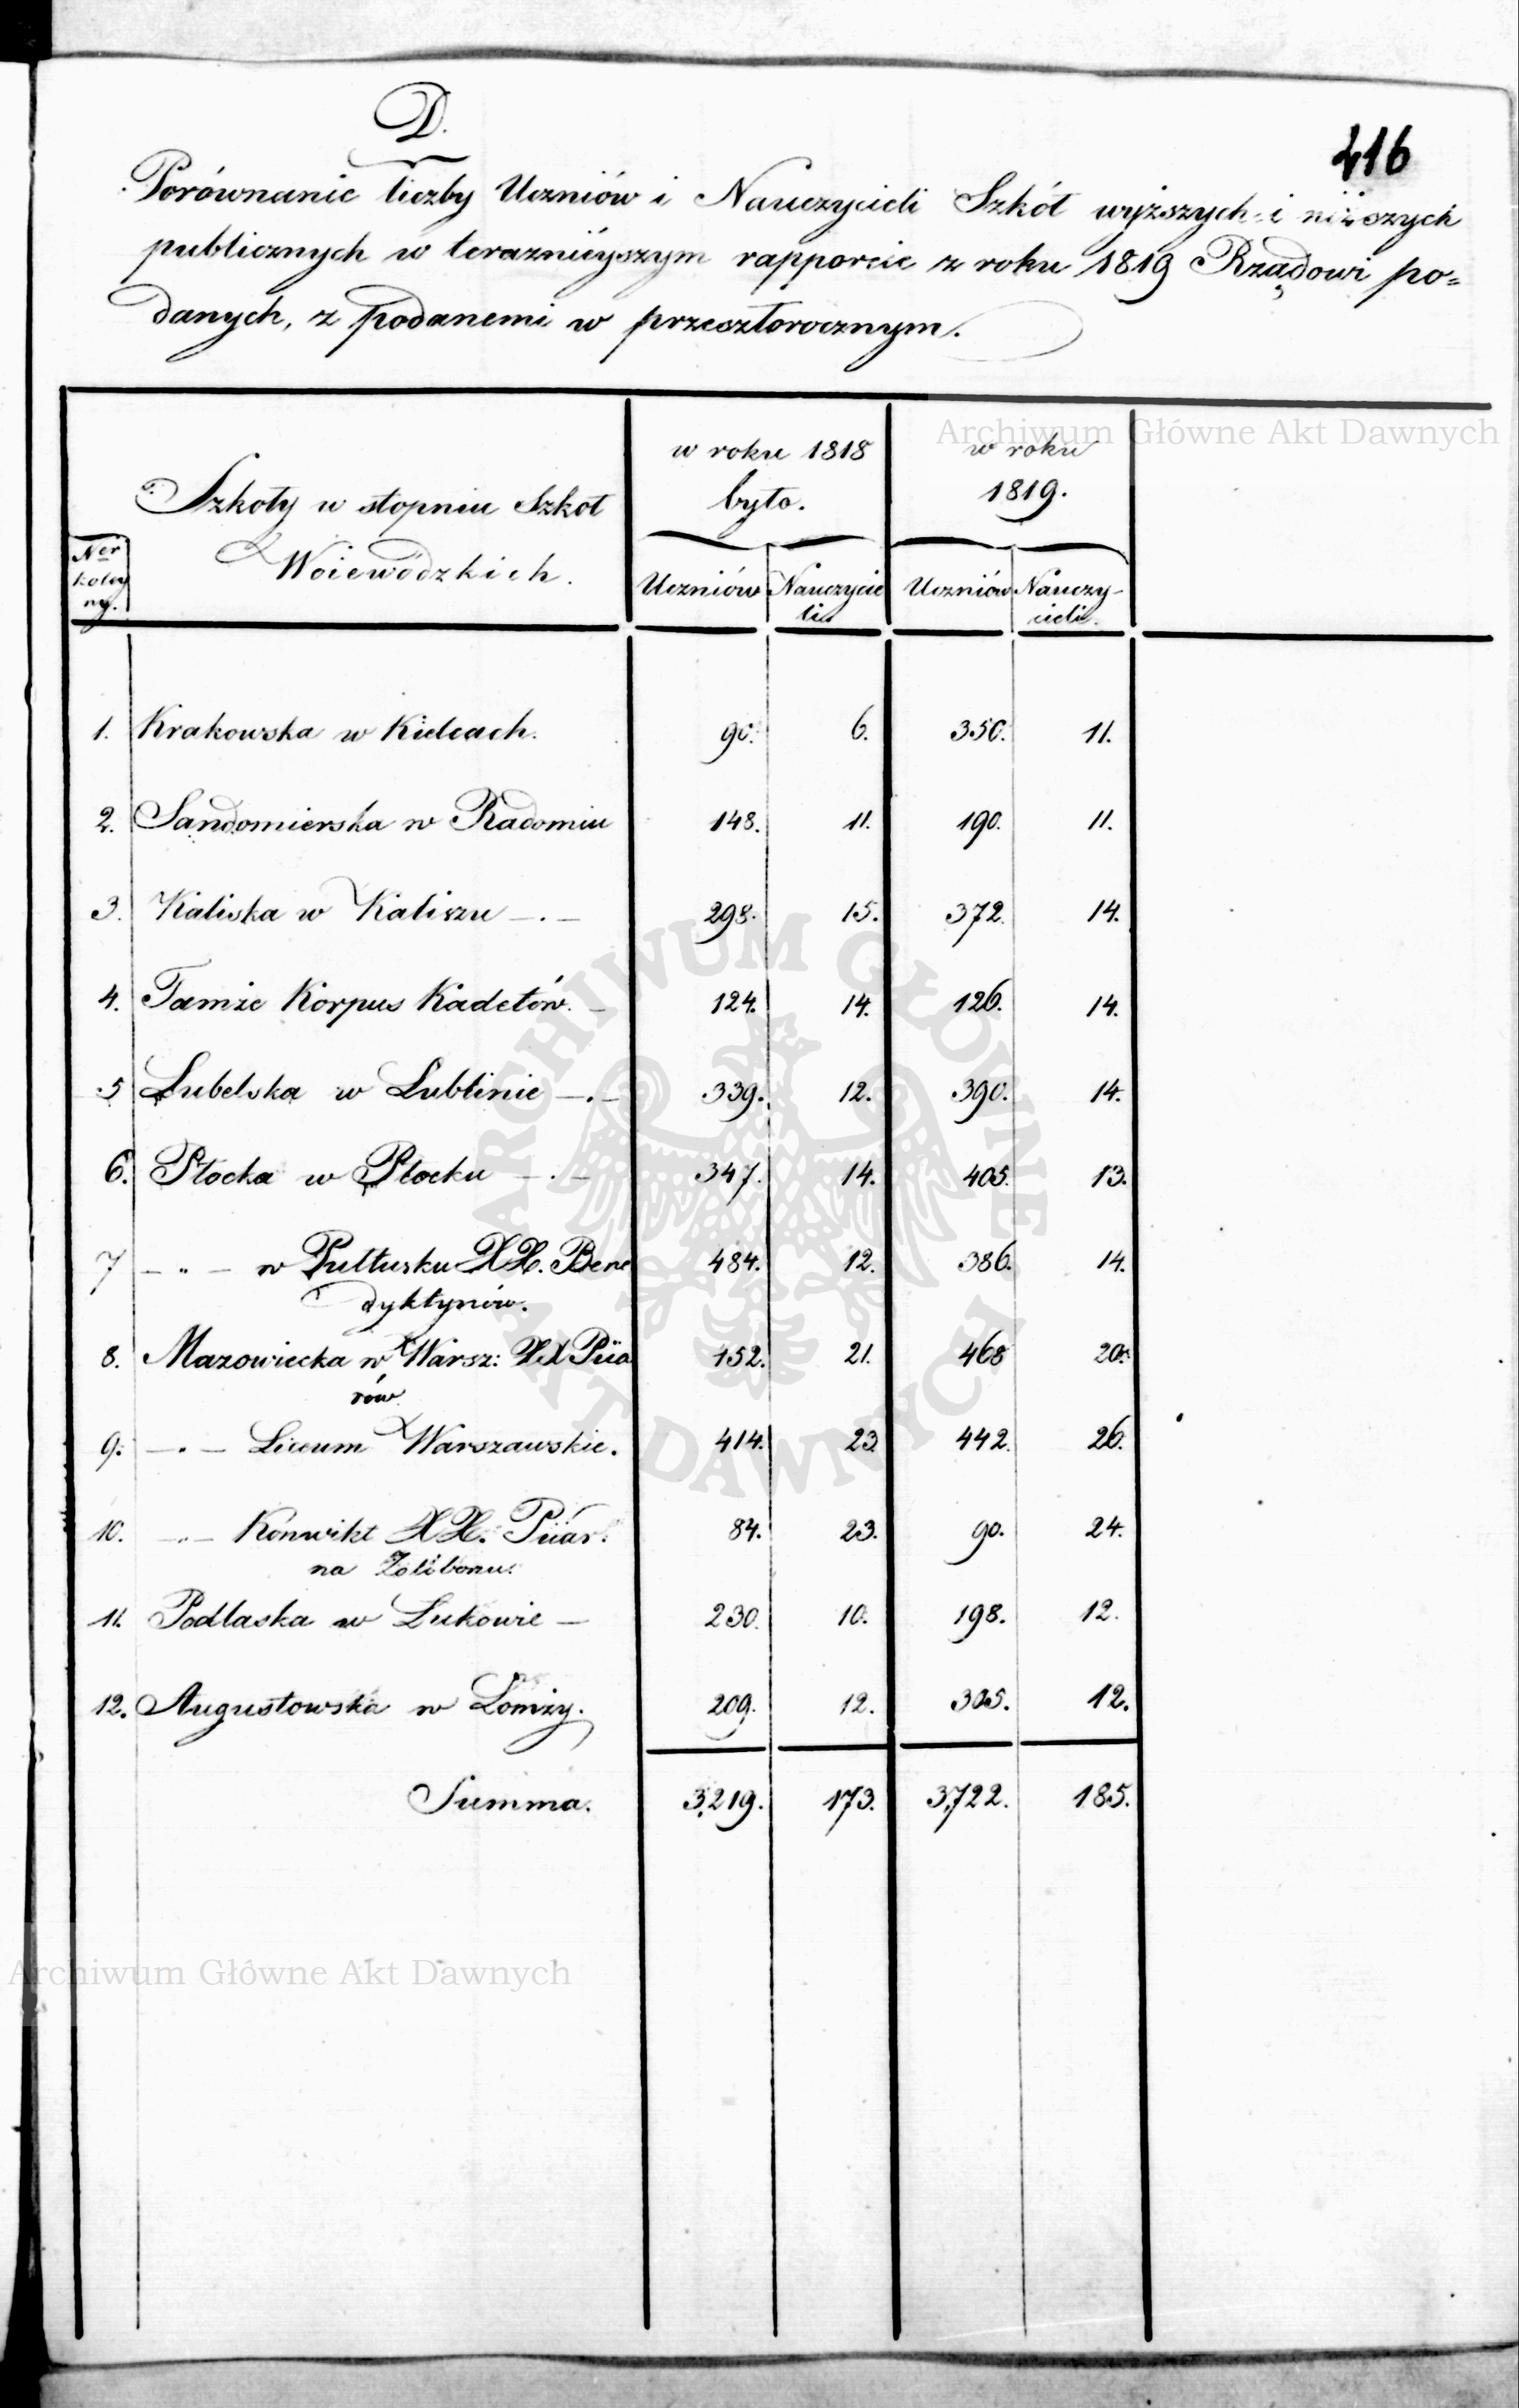 D.
416
Porównanie liczby Uczniów i Nauczycieli Szkół wyższych i niższych
publicznych w teraznieyszym rapporcie z roku 1819 Rządowi po=
danych, z podanemi w przeszłorocznym.
Archiwum Główne Akt Dawnych
Szkoły w stopniu Szkół
Woiewódzkich.
w roku 1818
było.
w roku
1819.
Ner
koley
ny.
Uczniów Nauczycie
li Uczniów Nauczy-
cieli.
1. Krakowska w Kielcach. 90. 6. 350. 11.
2. Sandomierska w Radomiu 148. 11. 190. 11.
3. Kaliska w Kaliszu —.— 298. 15. 372. 14.
4. Tamże Korpus Kadetów. — 124. 14. 126. 14.
5 Lubelska w Lublinie —.— 339. 12. 390. 14.
6. Płocka w Płocku —.— 347. 14. 405. 13.
7 — „ — w Pułtusku XX. Bene 484. 12. 386. 14.
dyktynów.
8. Mazowiecka w Warsz: XX Piia 452. 21. 468 20.
rów.
9. —.— Liceum Warszawskie. 414. 23 442. 26.
10. —.— Konwikt XX. Piiar. 84. 23. 90. 24.
na Zoliborzu.
11. Podlaska w Łukowie — 230. 10. 198. 12.
12. Augustowska w Łomży. 209. 12. 305. 12.
Summa. 3,219. 173. 3,722. 185.
ARCHIWUM GŁÓWNE
AKT DAWNYCH
Archiwum Główne Akt Dawnych